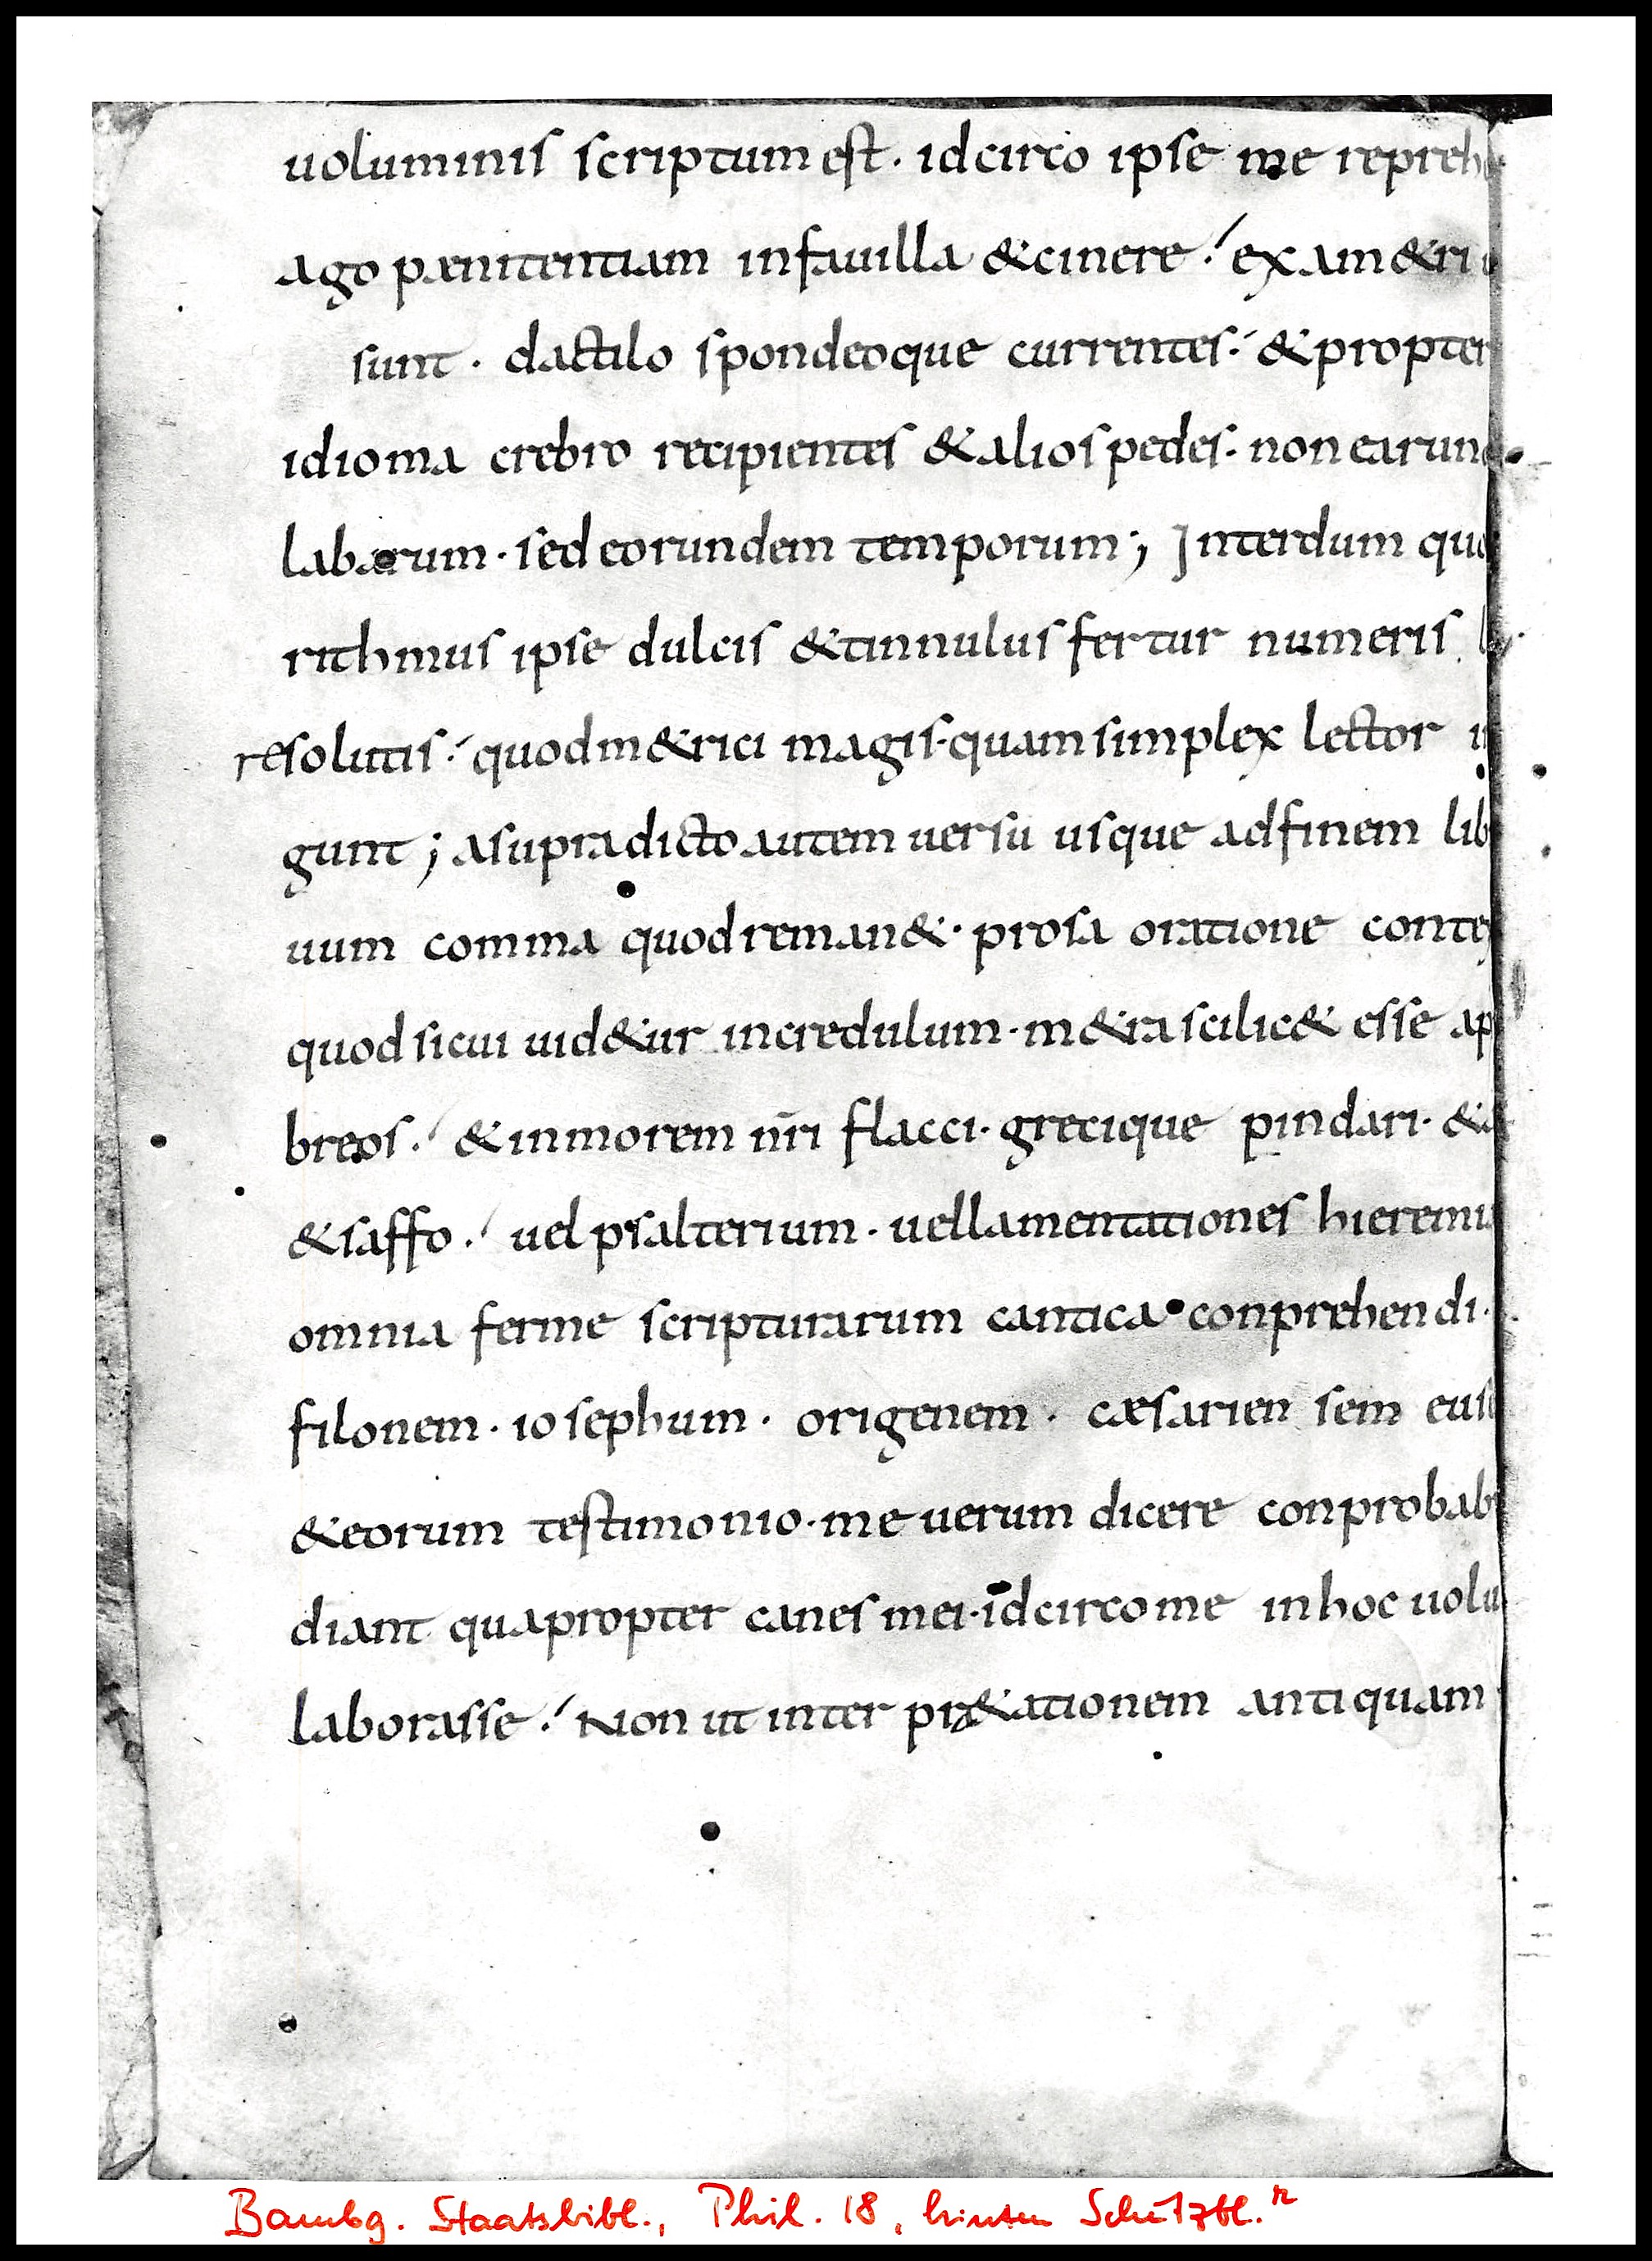 uoluminis scriptum est· idcirco ipse me repreh
ago pænitentiam infauilla &cinere·/ exam&ri
sunt· dactilo spondeoque currentes·/ &propter
idioma crebro recipientes &alios pedes· non earun
labarum· sed eorundem temporum; Interdum quo
rithmus ipse dulcis &tinnulus fertur numeris
resolutis·/ quodm&rici magis·quam simplex lector
gunt; asupradicto autem uersu usque adfinem lib
uum comma quod reman&· prosa oratione conte
quod sicui uid&ur incredulum· m&ra scilic& esse ap
breos·/ &inmorem nr̄i flacci· grecique pindari· &
&saffo·/ uel psalterium· uellamentationes hieremi
omnia ferme scripturarum cantica conprehendi·
filonem· iosephum· origenem· cæsarien sem eus
&eorum testimonio· me uerum dicere conprobab
diant quapropter canes mei· idcirco me inhoc uolu
laborasse·/ Non ut inter pr&ationem antiquam
Bambg. Staatsbibl., Phil. 18, hinten Schutzbl. r